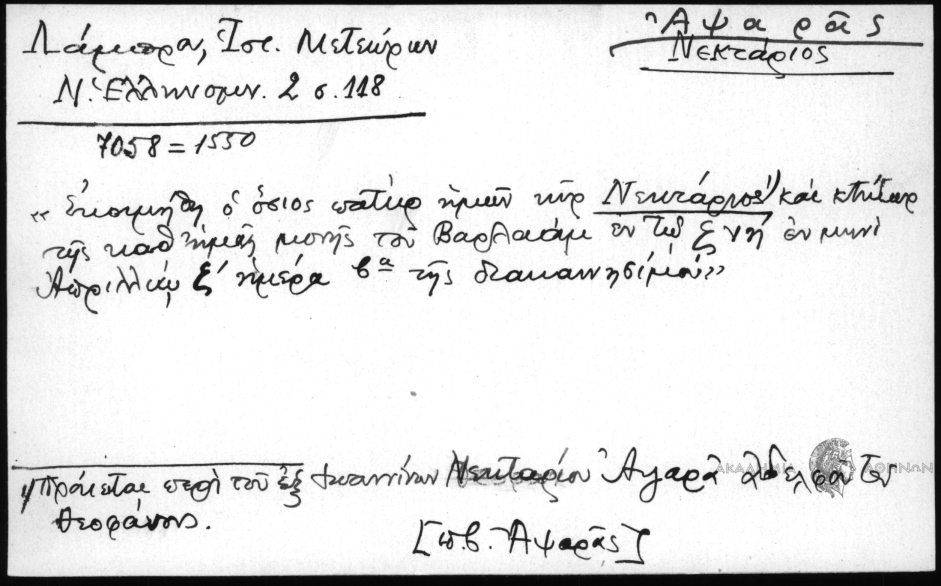 Ἀψαρᾶς
Νεκτάριος
Λάμπρα, Ἱστ. Μετεώρων
Ν. Ἑλληνομν. 2 σ. 118
7058 = 1550
« Ἐκοιμήθη ὁ ὅσιος πατὴρ ἡμῶν κὺρ Νεκτάριος¹⁾ καὶ κτήτωρ
τῆς καθ' ἡμᾶς μονῆς τοῦ Βαρλαὰμ ἐν τῷ ζνη΄ ἐν μηνὶ
Ἀπριλλίῳ ζ΄ ἡμέρα βᾳ τῆς διακαινησίμου»
1) Πρόκειται περὶ τοῦ ἐξ Ἰωαννίνων Νεκταρίου Ἀψαρᾶ ἀδελφοῦ τοῦ
Θεοφάνους.
[πβ. Ἀψαρᾶς]
ΑΚΑΔΗΜΙΑ ΑΘΗΝΩΝ